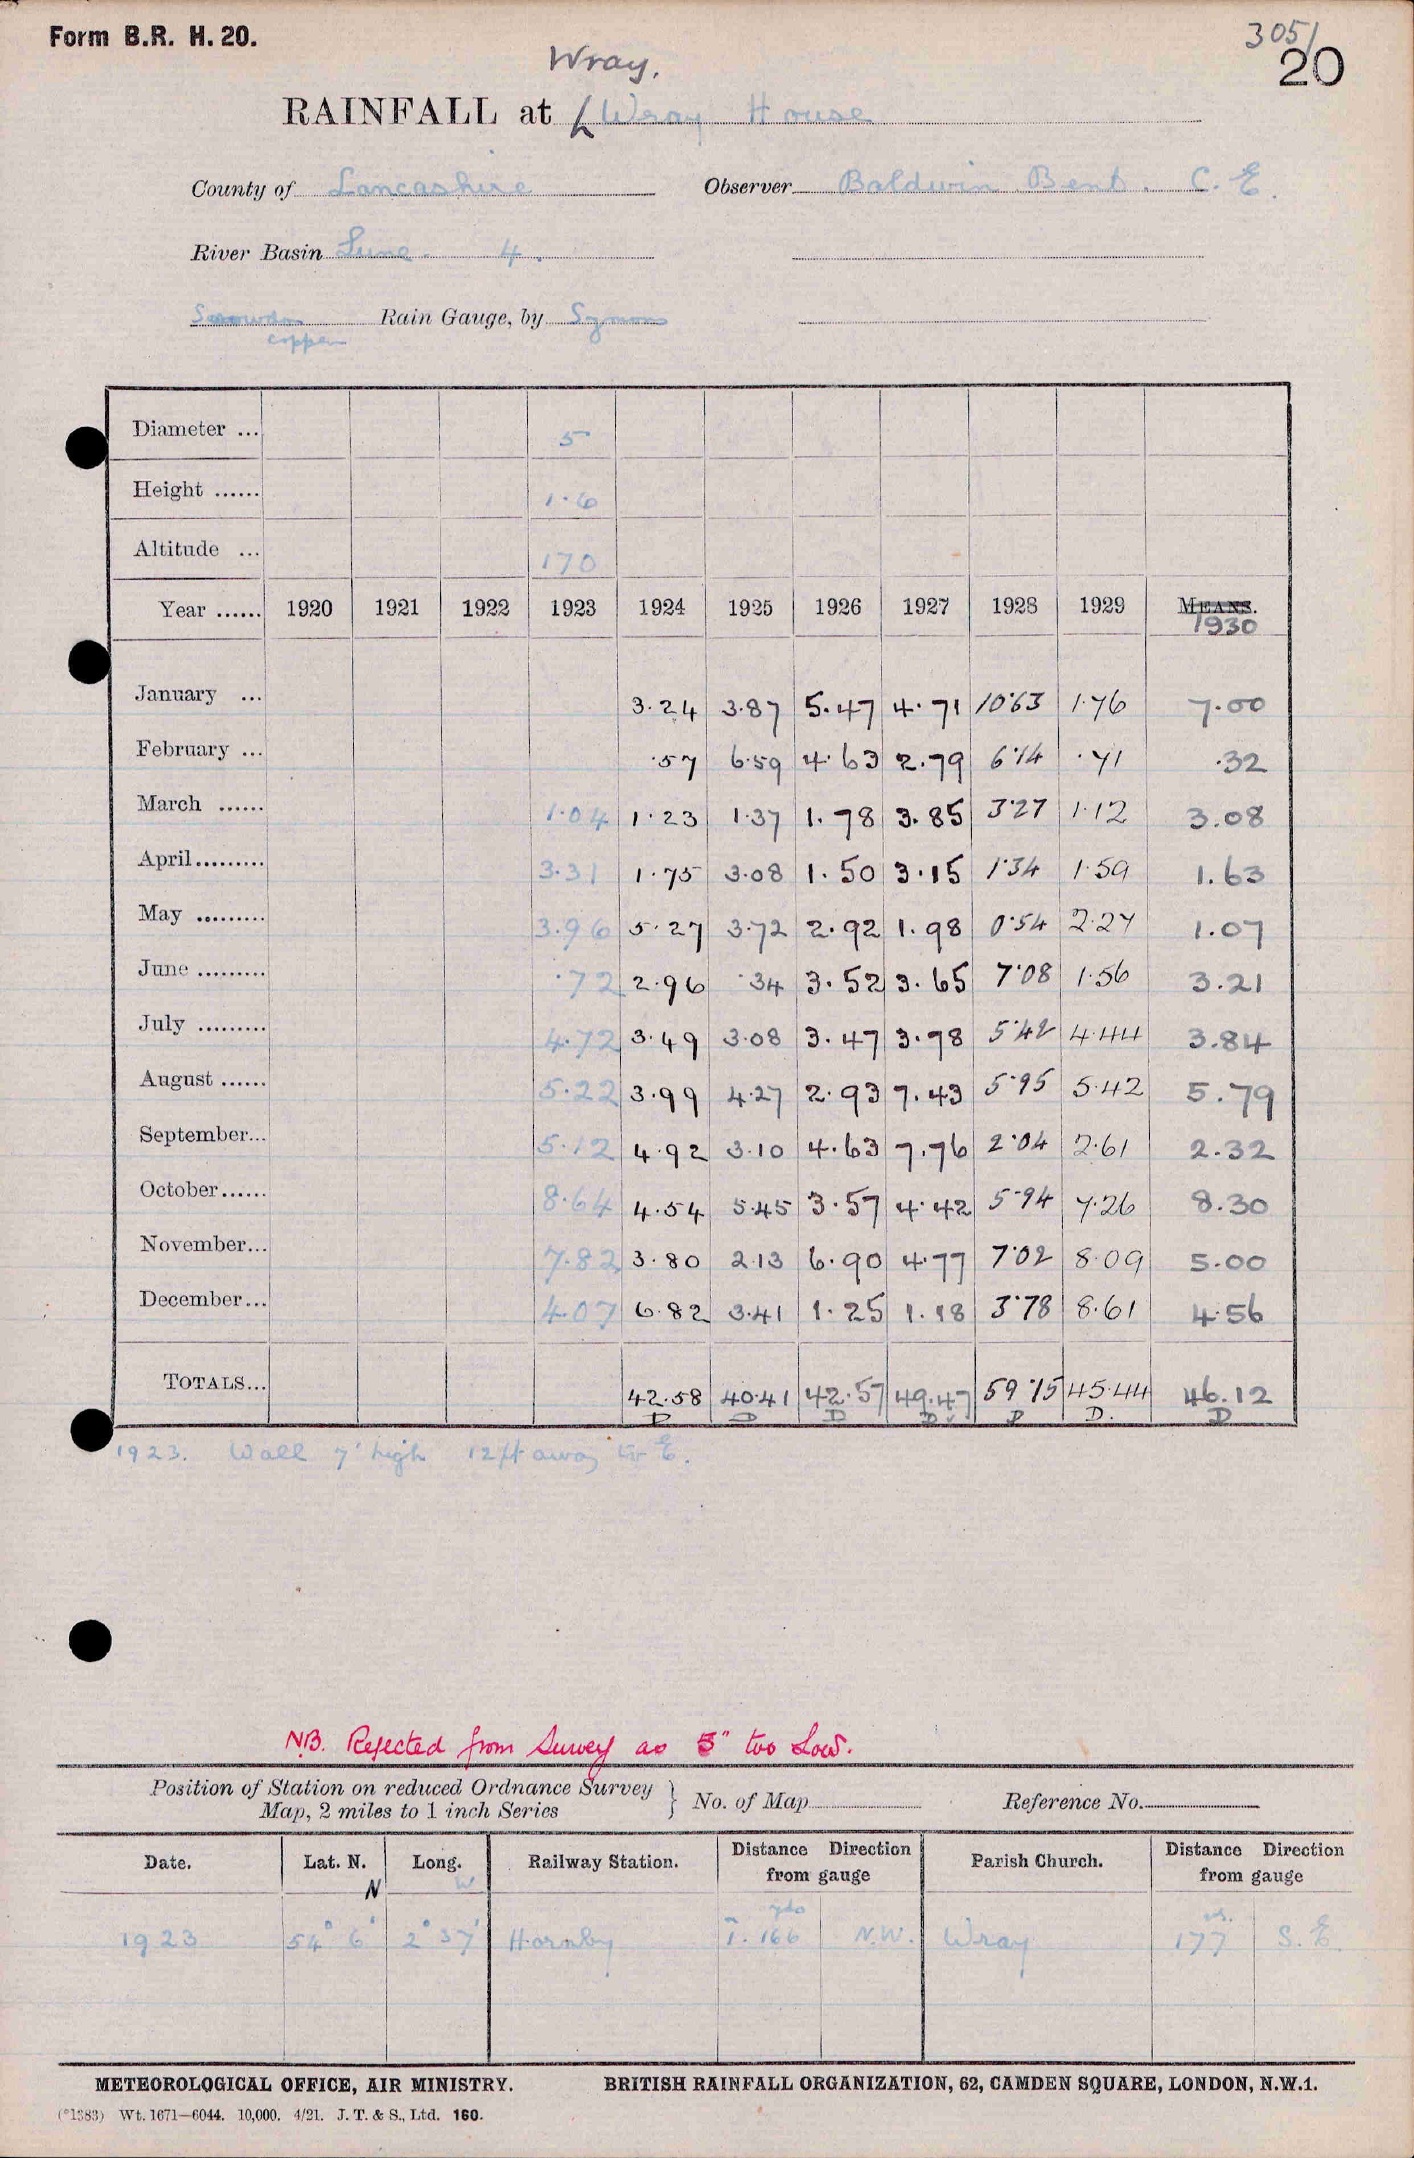 Form B.R. H. 20.
3051
20
Wray.
RAINFALL at Wray House
County of Lancashire Observer Baldwin Bent. C.E.
River Basin Lune. 4.
Snowdon Rain Gauge, by Symons
copper
Diameter ... 5
Height ...... 1.6
Altitude ... 170
Year ...... 1920 1921 1922 1923 1924 1925 1926 1927 1928 1929 MEANS.
1930
January ... 3.24 3.87 5.47 4.71 10.63 1.76 7.00
February ... .57 6.59 4.63 2.79 6.14 .71 .32
March ...... 1.04 1.23 1.37 1.78 3.85 3.27 1.12 3.08
April......... 3.31 1.75 3.08 1.50 3.15 1.34 1.59 1.63
May ......... 3.96 5.27 3.72 2.92 1.98 0.54 2.27 1.07
June ......... .72 2.96 .34 3.52 3.65 7.08 1.56 3.21
July ......... 4.72 3.49 3.08 3.47 3.78 5.42 4.44 3.84
August ...... 5.22 3.99 4.27 2.93 7.43 5.95 5.42 5.79
September... 5.12 4.92 3.10 4.63 7.76 2.04 2.61 2.32
October...... 8.64 4.54 5.45 3.57 4.42 5.94 7.26 8.30
November... 7.82 3.80 2.13 6.90 4.77 7.02 8.09 5.00
December... 4.07 6.82 3.41 1.25 1.18 3.78 8.61 4.56
TOTALS... 42.58 40.41 42.57 49.47 59.15 45.44 46.12
D D D D D D. D
1923. Wall 7' high 12ft away to E.
N.B. Rejected from Survey as 5" too Low.
Position of Station on reduced Ordnance Survey
Map, 2 miles to 1 inch Series } No. of Map Reference No.
Date. Lat. N. Long. Railway Station. Distance Direction from gauge Parish Church. Distance Direction from gauge
N W
1923 54° 6' 2° 37' Hornby 1. 166 yds N.W. Wray 177 S.E.
METEOROLOGICAL OFFICE, AIR MINISTRY. BRITISH RAINFALL ORGANIZATION, 62, CAMDEN SQUARE, LONDON, N.W.1.
(*1383) Wt. 1671—6044. 10,000. 4/21. J. T. & S., Ltd. 160.